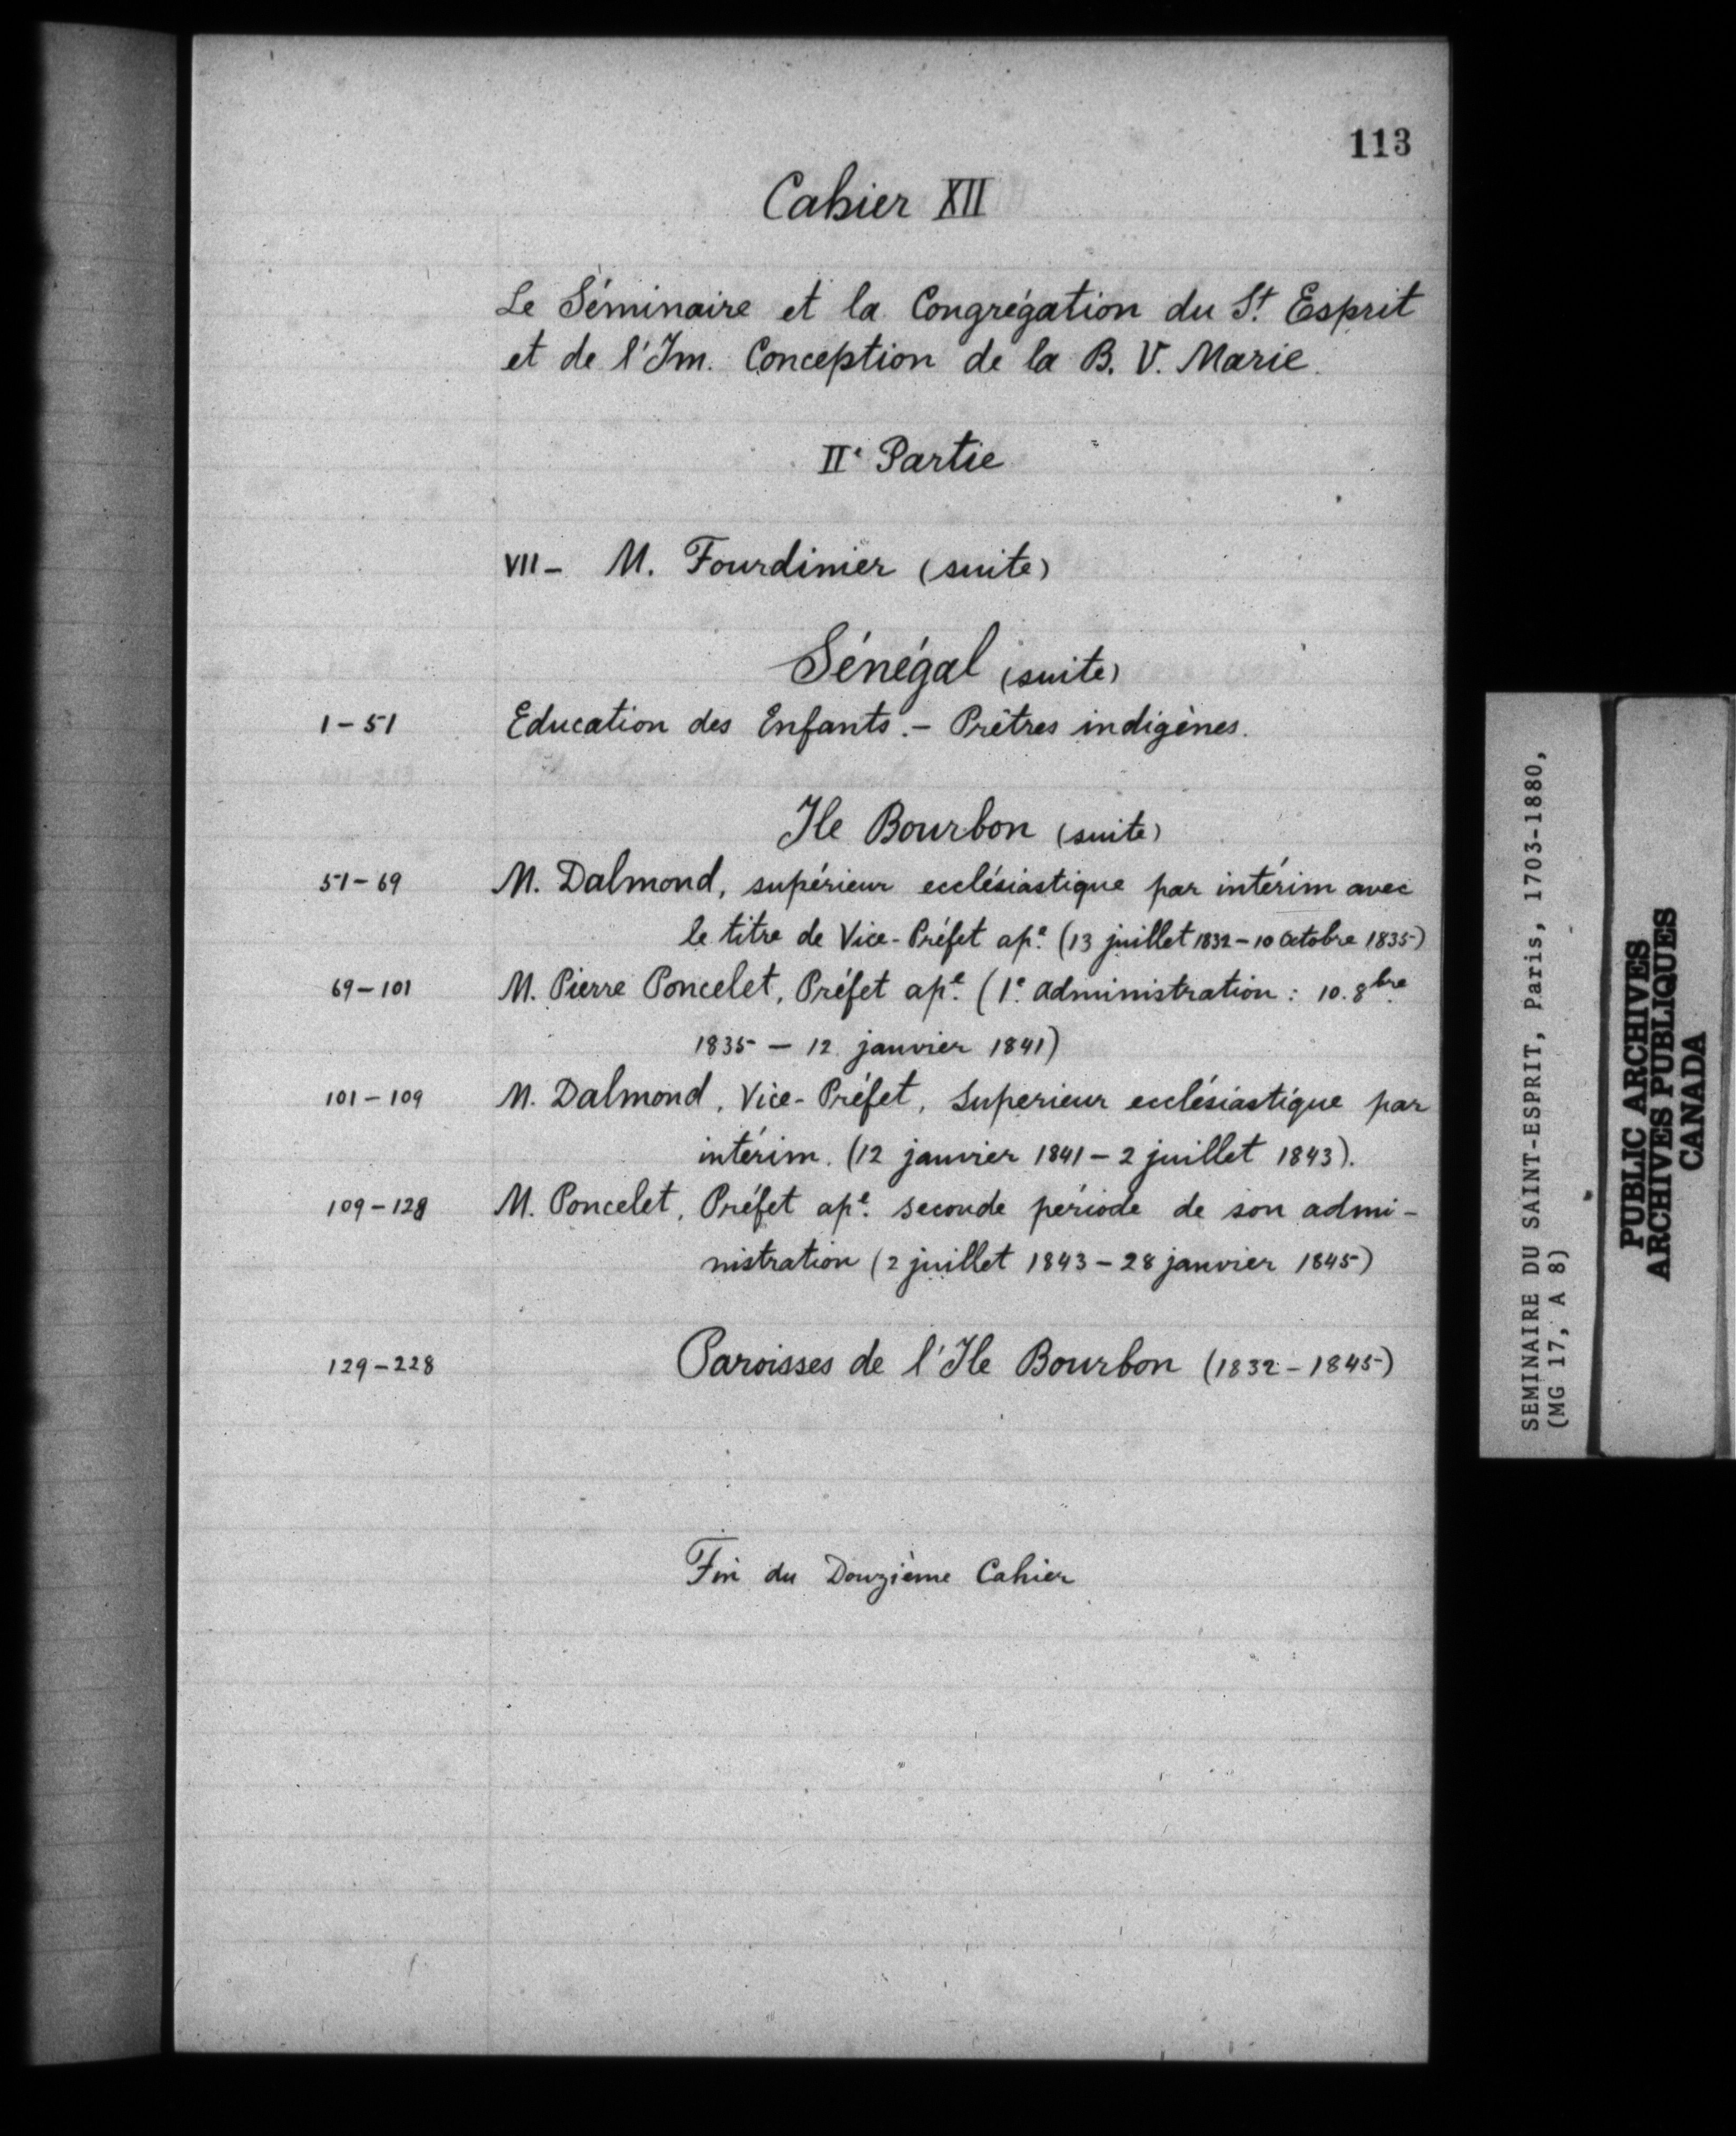 113
Cahier XII
Le Séminaire et la Congrégation du St. Esprit
et de l'Im. Conception de la B. V. Marie.
IIe Partie
VII - M. Fourdinier (suite)
Sénégal (suite)
1-51 Education des Enfants. - Prêtres indigènes.
Ile Bourbon (suite)
51-69 M. Dalmond, supérieur ecclésiastique par intérim avec
le titre de Vice-Préfet ape. (13 juillet 1832 - 10 Octobre 1835)
69-101 M. Pierre Poncelet, Préfet ape. (1e administration : 10. 8bre
1835 - 12 janvier 1841)
101-109 M. Dalmond, Vice-Préfet, Superieur ecclésiastique par
intérim. (12 janvier 1841 - 2 juillet 1843).
109-128 M. Poncelet, Préfet ape. seconde période de son admi-
nistration (2 juillet 1843 - 28 janvier 1845)
129-228 Paroisses de l'Ile Bourbon (1832-1845)
Fin du Douzième Cahier
SEMINAIRE DU SAINT-ESPRIT, Paris, 1703-1880,
(MG 17, A 8)
PUBLIC ARCHIVES
ARCHIVES PUBLIQUES
CANADA